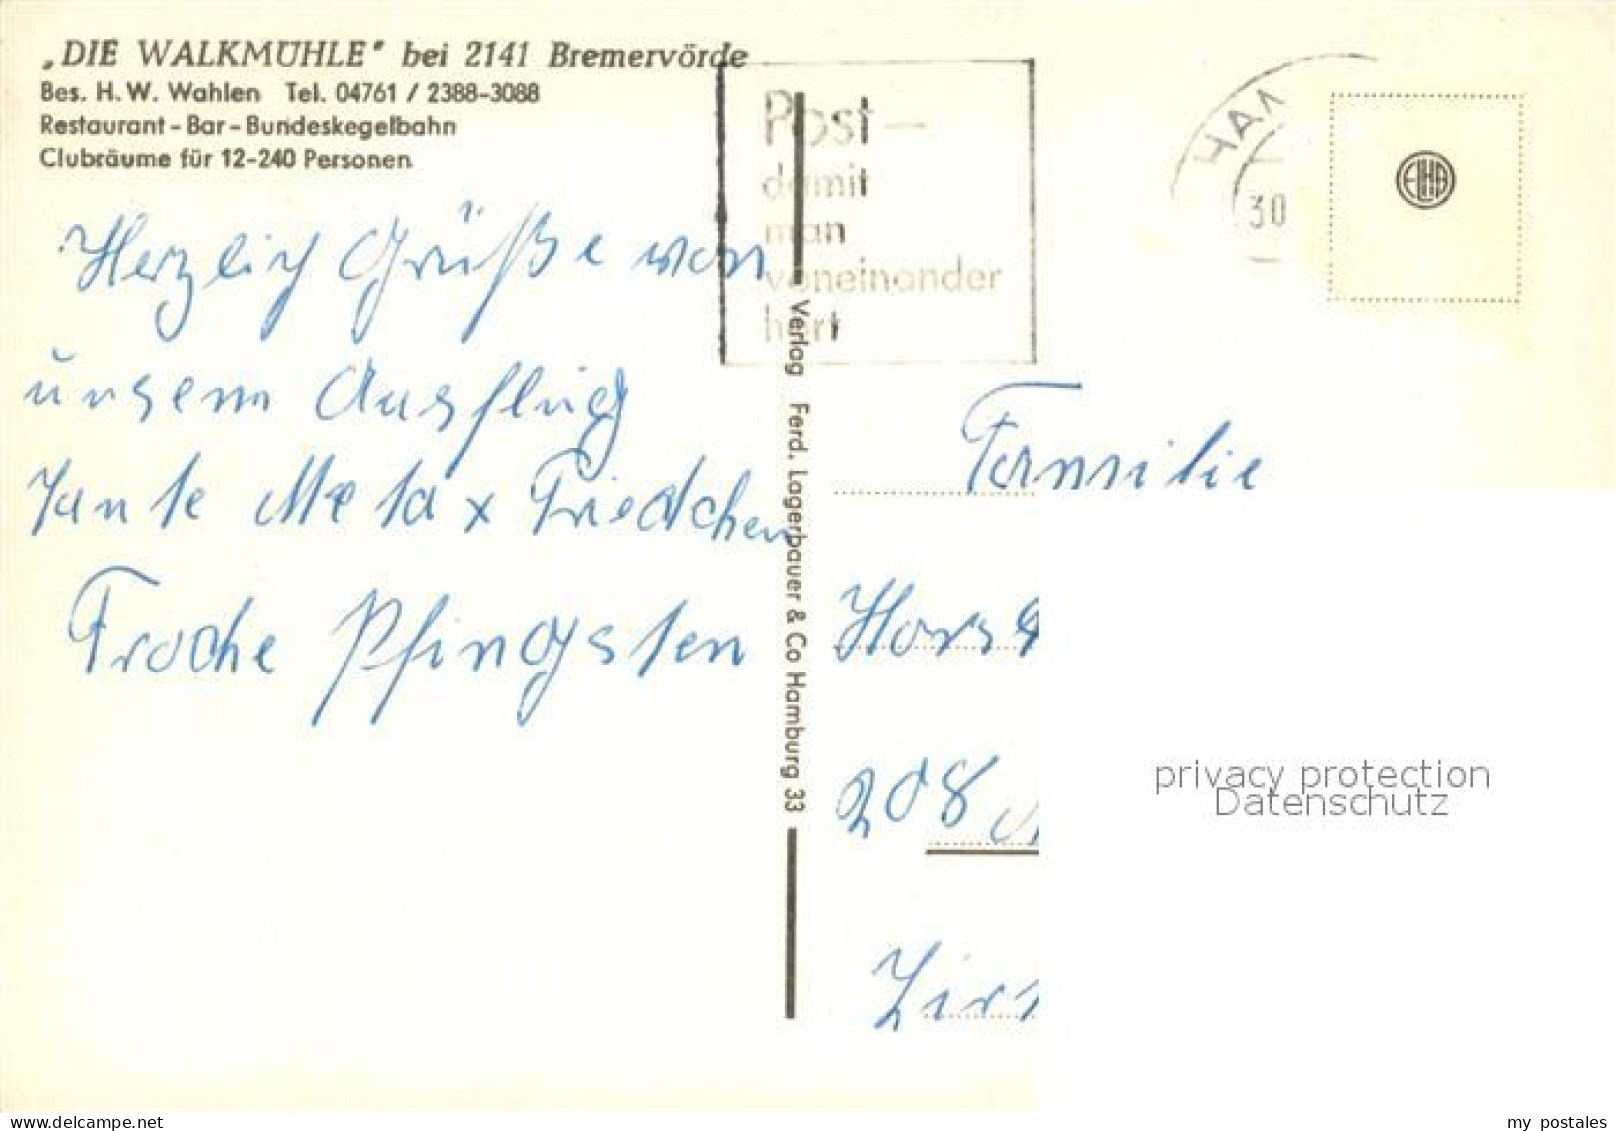 „DIE WALKMÜHLE" bei 2141 Bremervörde
Bes. H. W. Wahlen Tel. 04761 / 2388-3088
Restaurant - Bar - Bundeskegelbahn
Clubräume für 12-240 Personen
Herzlich Grüße von
unsem Ausflug
Tante Meta x Friedchen
Frohe Pfingsten
Post —
damit
man
voneinander
hört
Verlag Ferd. Lagerbauer & Co Hamburg 33
HAM
30
Familie
Horst
208
privacy protection
Datenschutz
delcampe.net
my postales